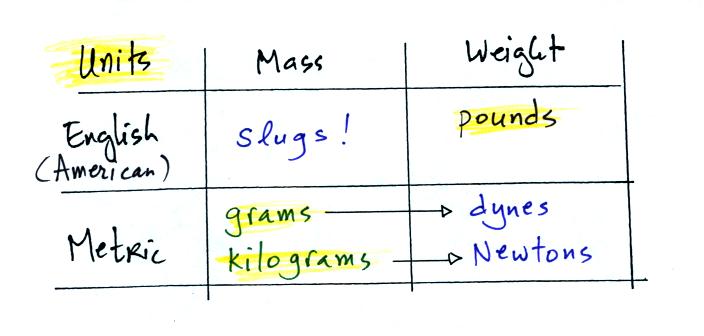 Units Mass Weight
English slugs! pounds
(American)
grams dynes
Metric kilograms Newtons